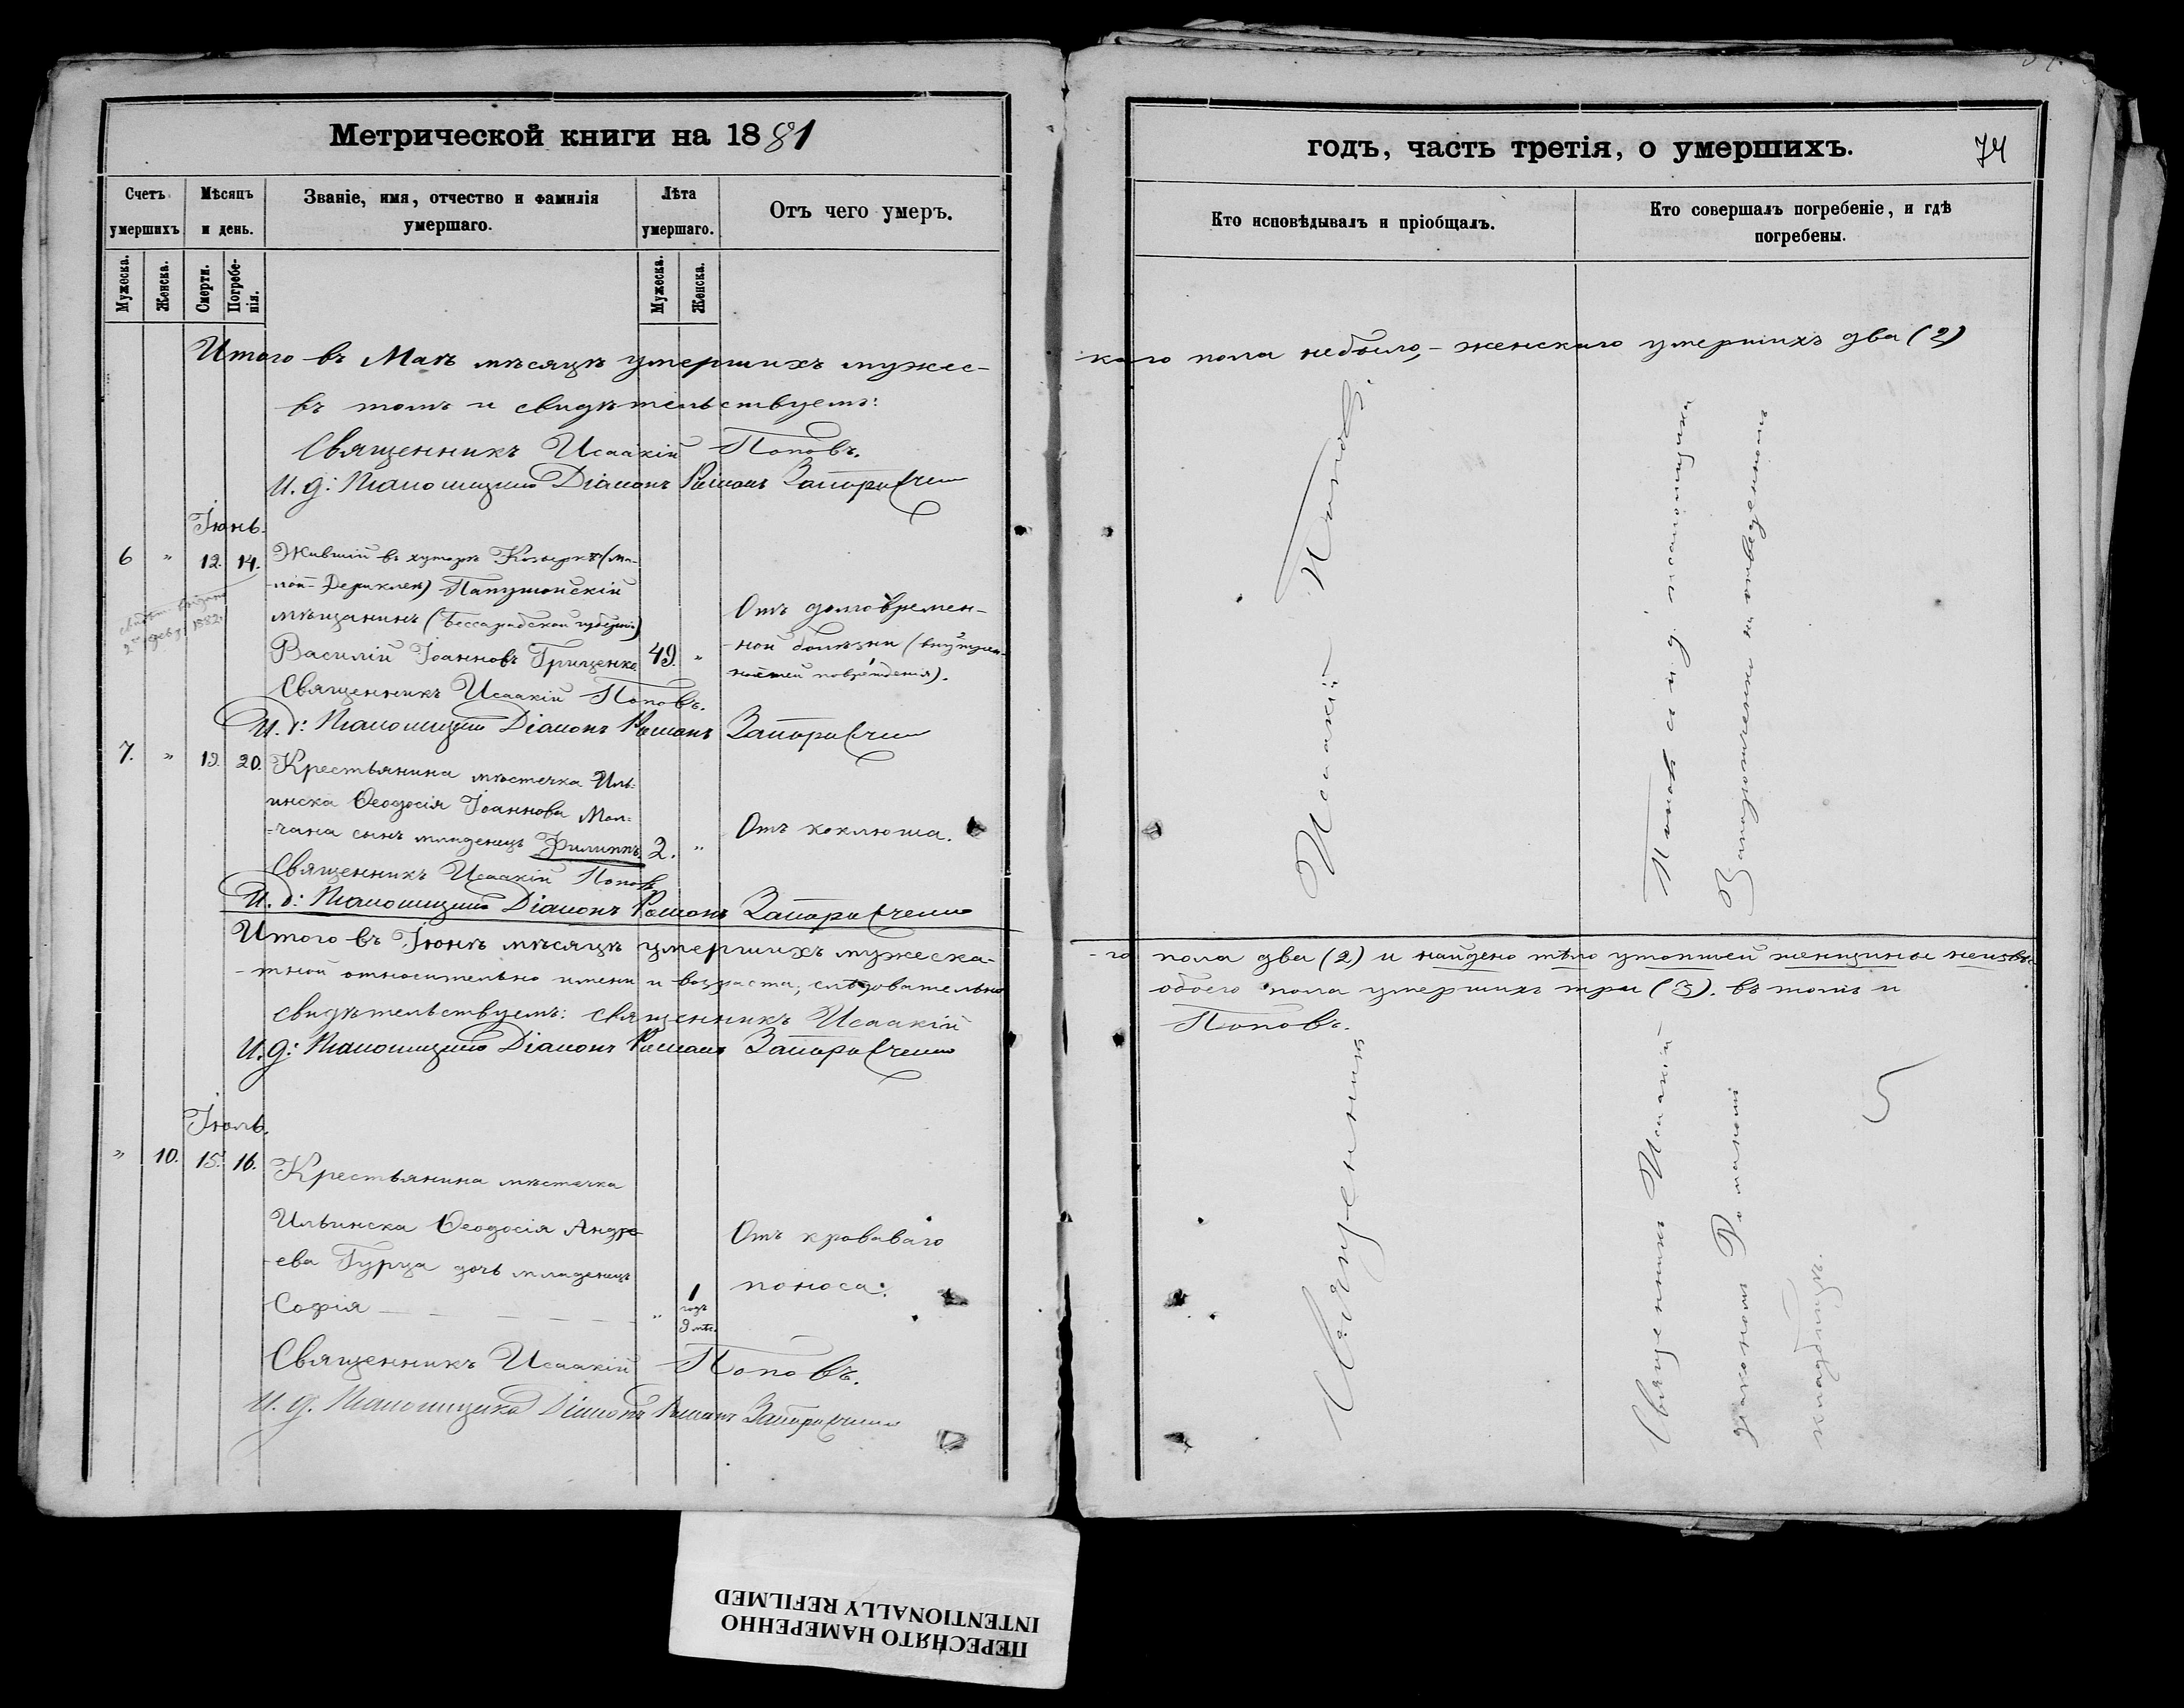 Метрической книги на 1881
Счетъ умершихъ.
Мѣсяцъ и день.
Званіе, имя, отчество и фамилія умершаго.
Лѣта умершаго.
Отъ чего умеръ.
Мужеска.
Женска.
Смерти.
Погребенія.
Мужеска.
Женска.
Итого въ Маѣ мѣсяцѣ умершихъ мужес-
въ томъ и свидѣтельствуемъ:
Священникъ Исаакій Поповъ.
И. д: Псаломщика Діаконъ Романъ
Іюнь.
6 " 12. 14. Жившій въ хуторѣ
мѣщанинъ (Бессарабской губерніи)
Василій Іоанновъ Грищенко 49. "
Отъ долговремен-
ной болѣзни (внутрен-
ностей поврежденія).
Священникъ Исаакій Поповъ.
И. д: Псаломщика Діаконъ Романъ
7. " 19. 20. Крестьянина мѣстечка Иль-
инска Ѳеодосія Іоаннова Мол-
чана сынъ младенецъ Филиппъ. 2. "
Отъ коклюша.
Священникъ Исаакій Поповъ
И. д: Псаломщика Діаконъ Романъ
Итого въ Іюнѣ мѣсяцѣ умершихъ мужеска-
-тной относительно имени и возраста, слѣдовательно
свидѣтельствуемъ: Священникъ Исаакій
И. д: Псаломщика Діаконъ Романъ
Іюль.
" 10. 15. 16. Крестьянина мѣстечка
Ильинска Ѳеодосія Андре-
ева Гурца дочь младенецъ
Софія " 1 годъ 9 мѣс.
Отъ кроваваго
поноса.
Священникъ Исаакій Поповъ.
И. д. Псаломщика Діаконъ Романъ
годъ, часть третія, о умершихъ.
74
Кто исповѣдывалъ и пріобщалъ.
Кто совершалъ погребеніе, и гдѣ погребены.
каго пола небыло, - женскаго умершихъ два (2)
-го пола два (2) и найдено тѣло утопшей женщины неизвѣс
обоего пола умершихъ три (3). въ томъ и
Поповъ.
Священникъ Исаакій Поповъ.
Священникъ Исаакій Поповъ с и. д. псаломщика
діакономъ Романомъ на отведенномъ
кладбищѣ.
ПЕРЕСНЯТО НАМЕРЕННО
INTENTIONALLY REFILMED